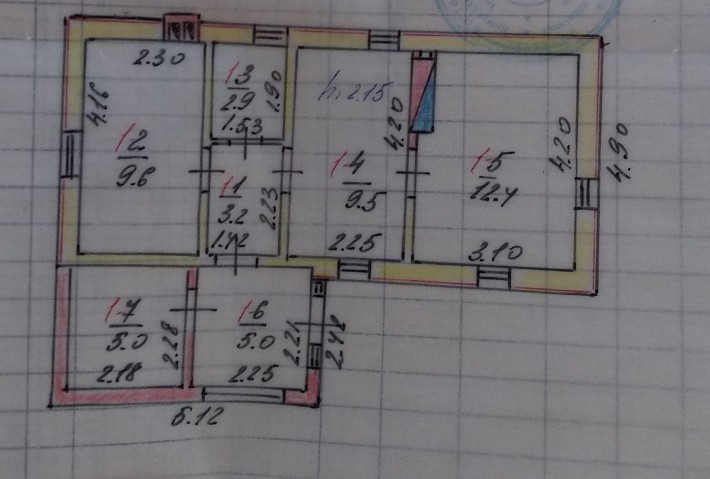 2.30
4.16
1-2
9.6
1-3
2.9
1.90
1.53
h-2.15
4.20
1-4
9.5
2.25
1-5
12.4
4.20
4.90
3.10
1-1
3.2
2.23
1.42
1-7
5.0
2.28
2.18
1-6
5.0
2.21
2.48
2.25
5.12